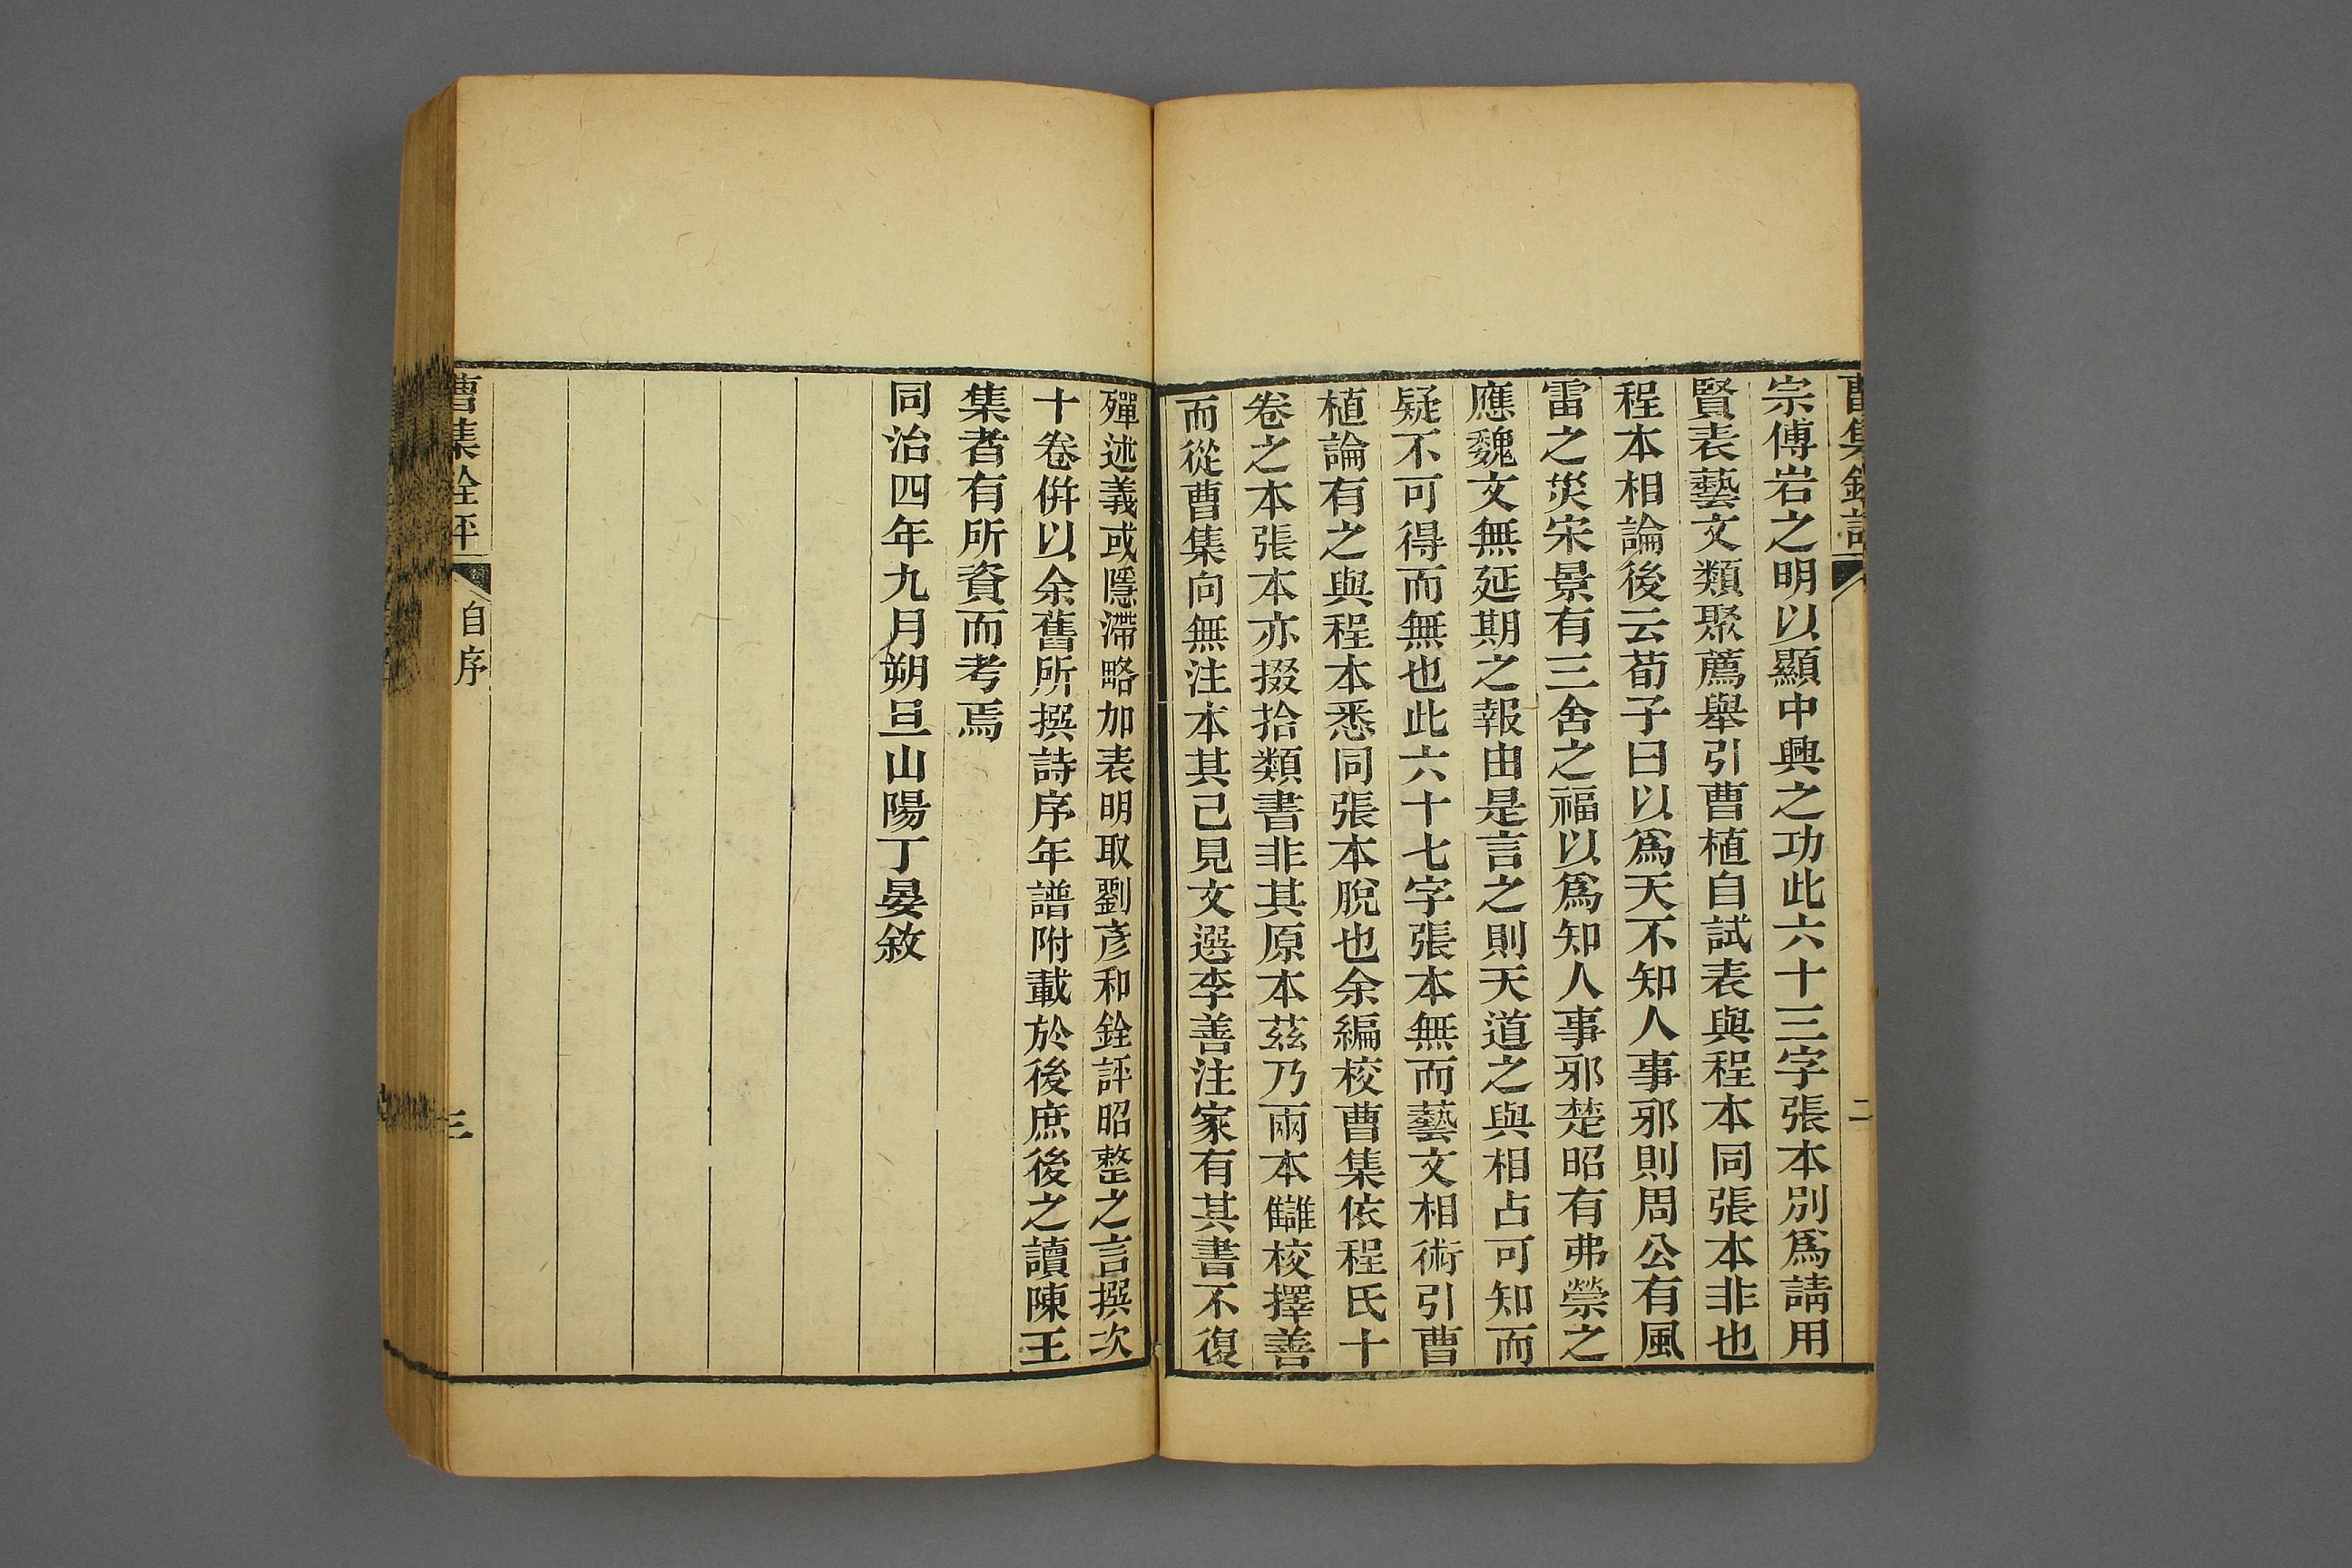 曹集銓評
二
宗傅岩之明以顯中興之功此六十三字張本別爲請用
賢表藝文類聚薦舉引曹植自試表與程本同張本非也
程本相論後云荀子曰以爲天不知人事邪則周公有風
雷之災宋景有三舍之福以爲知人事邪楚昭有弗禜之
應魏文無延期之報由是言之則天道之與相占可知而
疑不可得而無也此六十七字張本無而藝文相術引曹
植論有之與程本悉同張本脫也余編校曹集依程氏十
卷之本張本亦掇拾類書非其原本茲乃兩本讎校擇善
而從曹集向無注本其已見文選李善注家有其書不復
殫述義或隱滯略加表明取劉彥和銓評昭整之言撰次
十卷倂以余舊所撰詩序年譜附載於後庶後之讀陳王
集者有所資而考焉
同治四年九月朔旦山陽丁晏敘
曹集銓評
自序
三